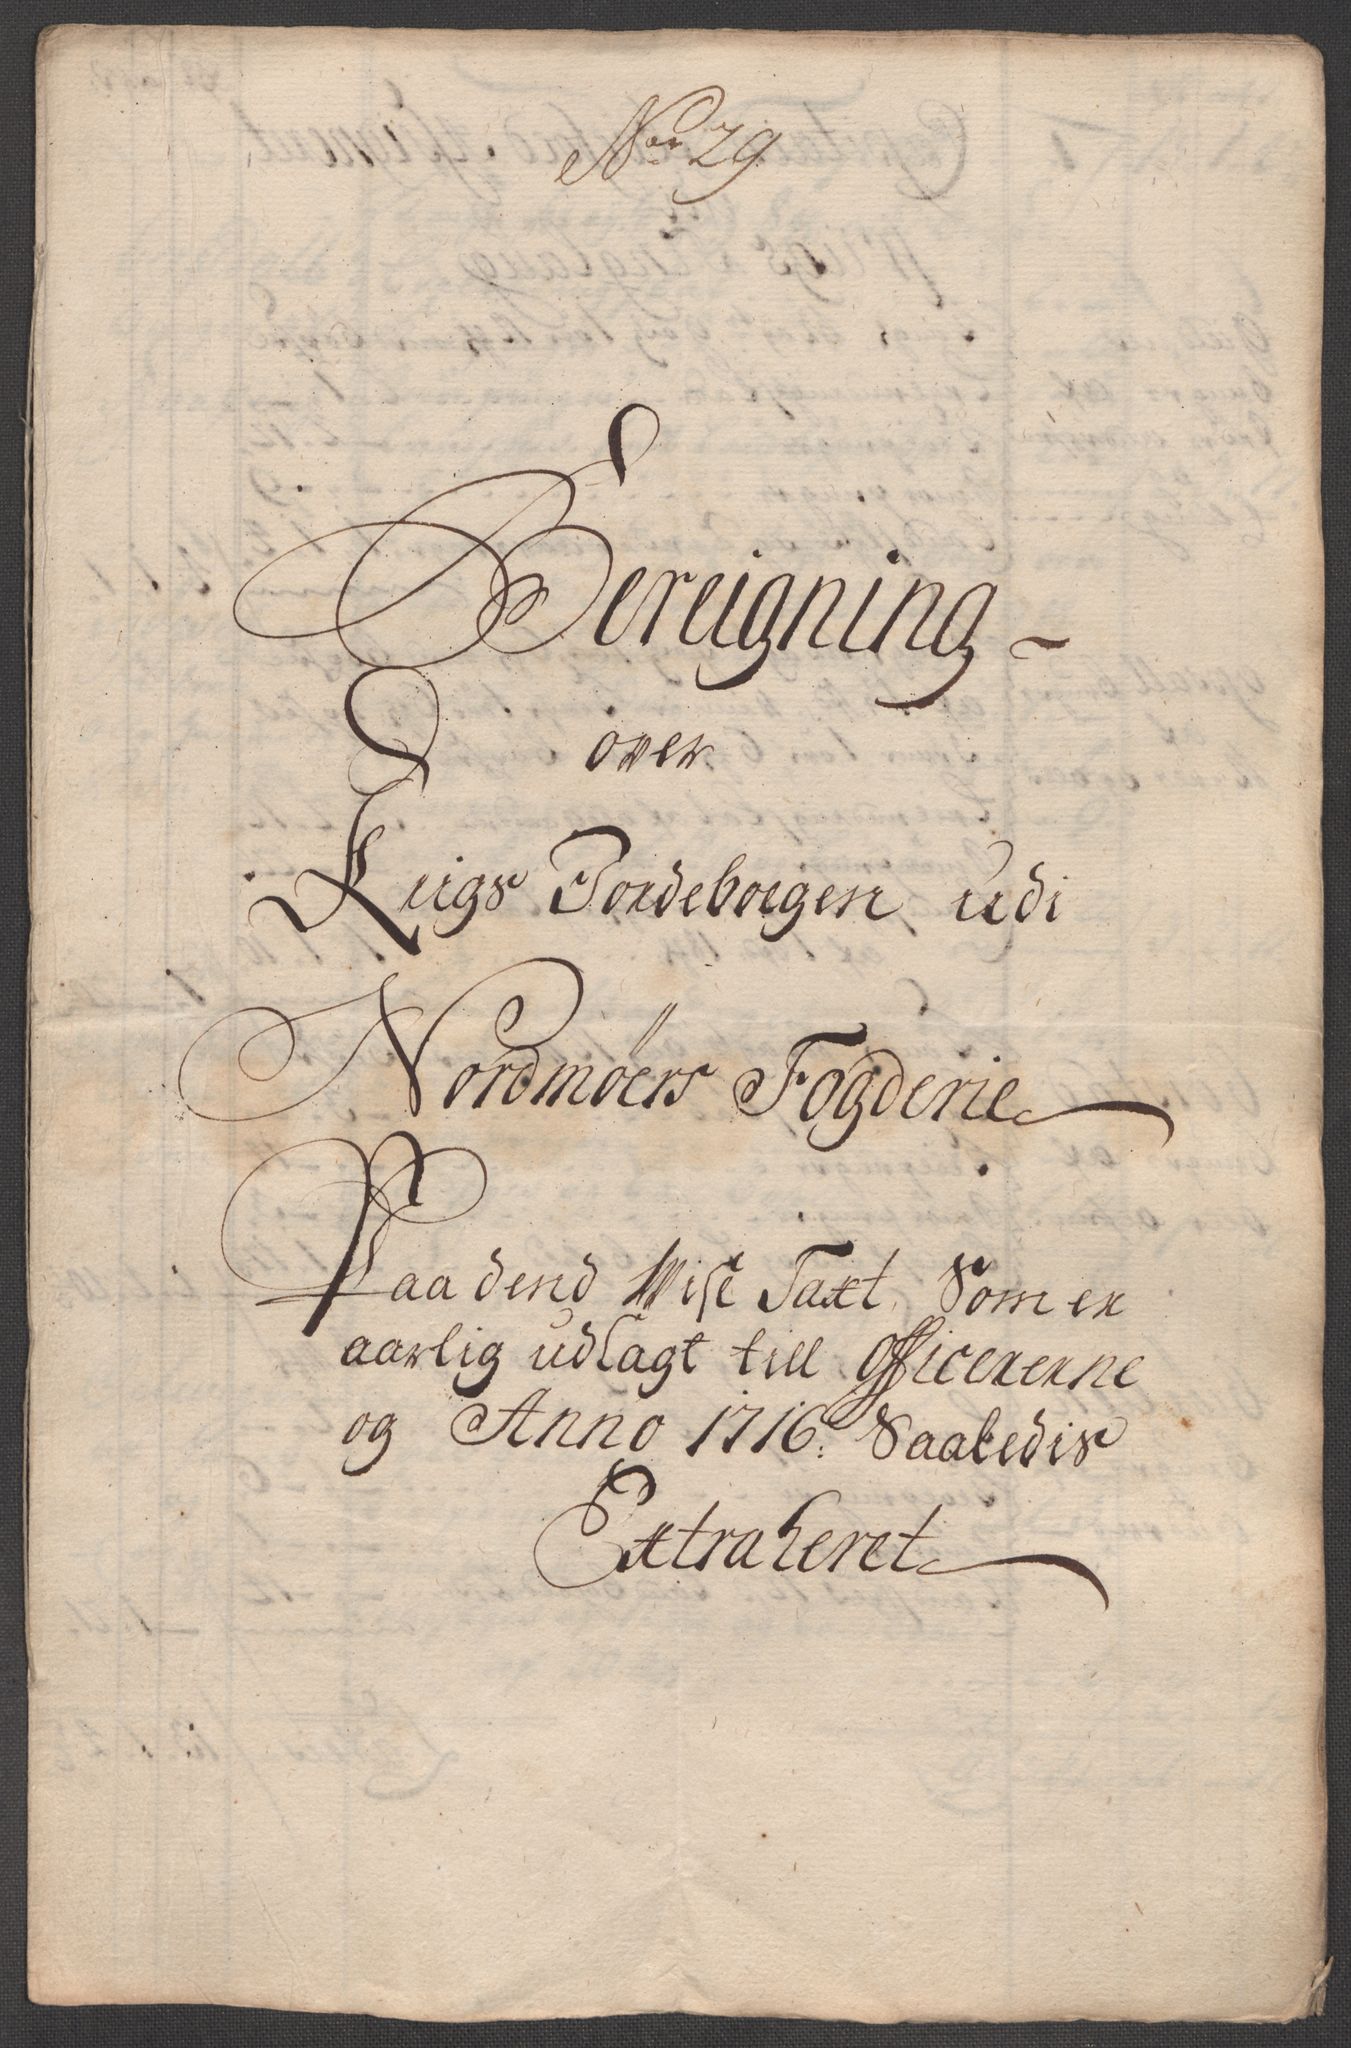 No 29
Bereigning
over
Krigs Jordebogen udi
Nordmøers Fogderie
Paa dend Wise Taxt, Som er
aarlig udlagt till officererne
og Anno 1716. Saaledis
Extraheret